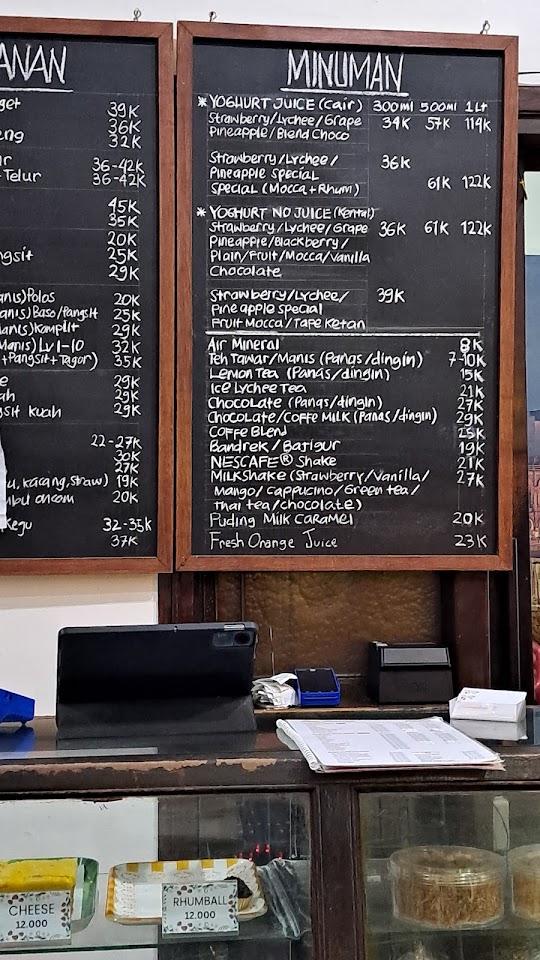 ANAN
39K
36K
32K
36-42K
Telur 36-42K
45K
35K
20K
25K
29K
Polos 20K
Baso/Pangsit 25K
Komplit 29K
LV 1-10 32K
+Pangsit+Tagor) 35K
29K
29K
kuah 29K
22-27K
30K
27K
kacang, straw) 19K
oncom 20K
32-35K
37K
MINUMAN
* YOGHURT JUICE (cair) 300ml 500ml 1Lt
Strawberry/Lychee/Grape 34K 57K 114K
Pineapple/Blend Choco
Strawberry/Lychee/ 36K
Pineapple Special
Special (Mocca+Rhum) 61K 122K
* YOGHURT NO JUICE (Kental)
Strawberry/Lychee/Grape 36K 61K 122K
Pineapple/Blackberry/
Plain/Fruit/Mocca/Vanilla
Chocolate
Strawberry/Lychee/ 39K
Pineapple Special
Fruit Mocca/Tape Ketan
Air Mineral 8K
Teh Tawar/Manis (Panas/dingin) 7-10K
Lemon Tea (Panas/dingin) 15K
Ice Lychee Tea 21K
Chocolate (Panas/dingin) 27K
Chocolate/Coffe Milk (Panas/dingin) 29K
Coffe Blend 25K
Bandrek/Bajigur 19K
NESCAFE® Shake 21K
Milkshake (Strawberry/Vanilla/ 27K
Mango/Cappucino/Green tea/
Thai tea/chocolate)
Puding Milk Caramel 20K
Fresh Orange Juice 23K
CHEESE
12.000
RHUMBALL
12.000